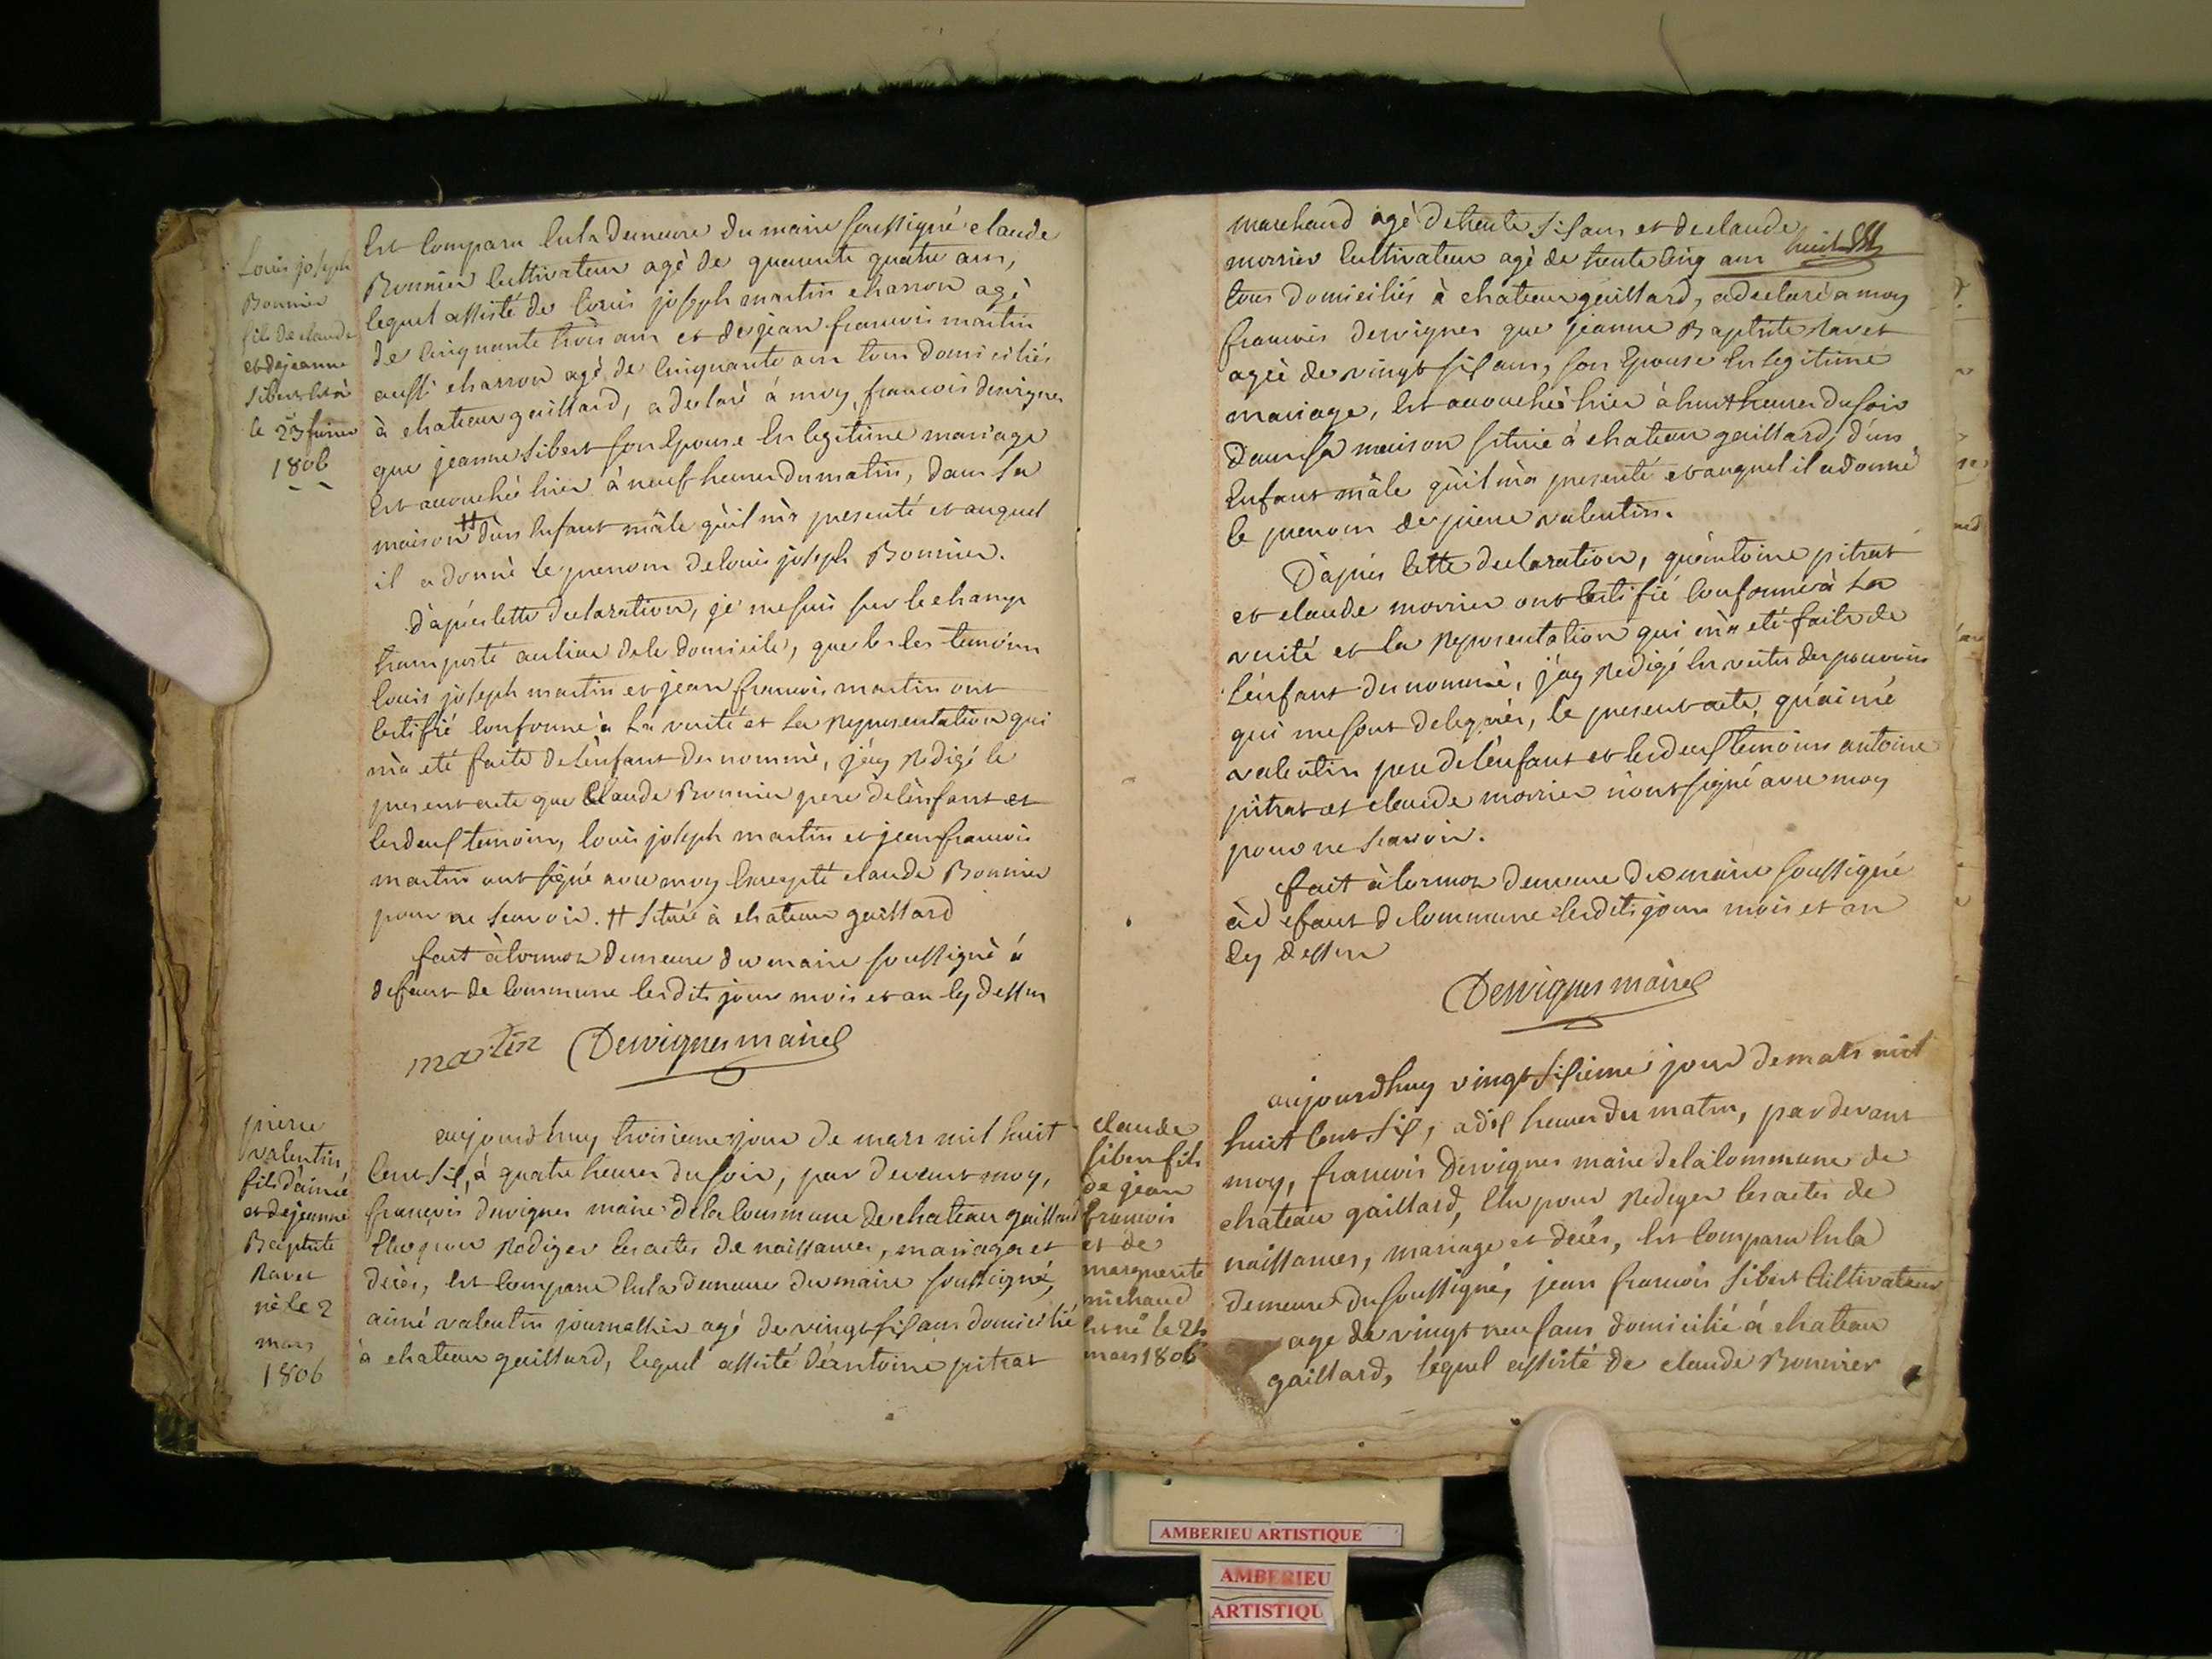 Louis joseph
Bonnier
fils de claude
et de jeanne
Sibert né
le 23 fevrier
1806
Est comparu en la demeure du maire soussigné claude
Bonnier cultivateur agé de quarente quatre ans,
lequel assisté de louis joseph martin charron agé
de cinquante trois ans et de jean francois martin
aussi charron agé de cinquante ans tous domiciliés
à chateau gaillard, a declaré à moy francois desvignes
que jeanne Sibert son Epouse En legitime mariage
Est accouchée hier à neuf heures du matin, dans sa
maison # d'un Enfant mâle qu'il m'a presenté et auquel
il a donné le prenom de louis joseph Bonnier.
D'après cette declaration, je me suis sur le champ
transporté au lieu de le domicile, que les temoins
louis joseph martin et jean francois martin ont
certifié conforme à la verité et la representation qui
m'a eté faite de l'enfant denommé, j'ay redigé le
present acte que Claude Bonnier pere de l'enfant et
les deux temoins, louis joseph martin et jean francois
martin ont signé avec moy Excepté claude Bonnier
pour ne scavoir. # située à chateau gaillard
fait à cormoz demeure du maire soussigné à
defaut de commune lesdits jour mois et an cy dessus
martin Desvignes maire
pierre
valentin,
fils d'aimé
et de jeanne
Baptiste
Ravet
né le 2
mars
1806
aujourdhuy troisieme jour de mars mil huit
cent six, à quatre heures du soir, par devant moy,
francois desvignes maire de la commune de chateau gaillard
Elu pour Rediger les actes de naissances, mariages et
decès, est comparu en la demeure du maire soussigné,
aimé valentin journallier agé de vingt six ans domicilié
à chateau gaillard, lequel assisté d'antoine pitrat
marchand agé de trente six ans et de claude
morrier cultivateur agé de trente cinq ans huit
tous domiciliés à chateau gaillard, a declaré a moy
francois desvignes que jeanne Baptiste Ravet
agée de vingt six ans, son Epouse En legitime
mariage, Est accouchée hier à huit heures du soir
dans sa maison située à chateau gaillard, d'un
Enfant mâle qu'il m'a presenté et auquel il a donné
le prenom de pierre valentin.
D'après cette declaration, qu'antoine pitrat
et claude morrier ont certifié conforme à la
verité et la representation qui m'a eté faite de
l'enfant denommé, j'ay redigé En vertu des pouvoirs
qui me sont delegués, le present acte, qu'aimé
valentin pere de l'enfant et les deux temoins antoine
pitrat et claude morrier n'ont signé avec moy
pour ne scavoir.
fait à cormoz demeure du maire soussigné
à defaut de commune lesdits jour mois et an
cy dessus
Desvignes maire
claude
siber fils
de jean
francois
et de
marguerite
michaud
est né le 25
mars 1806
aujourdhuy vingt sixieme jour de mars mil
huit cent six, a dix heures du matin, par devant
moy, francois Desvignes maire de la commune de
chateau gaillard, Elu pour Rediger les actes de
naissances, mariage et decès, Est comparu en la
demeure du soussigné, jean francois Sibert Cultivateur
agé de vingt neuf ans domicilié à chateau
gaillard, lequel assisté de claude Bonnier
AMBERIEU ARTISTIQUE
AMBERIEU
ARTISTIQU